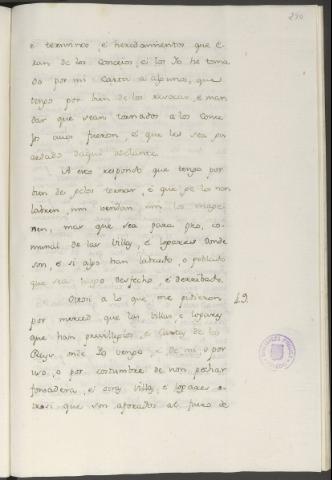 290
e terminos, e heredamientos que e-
ran de los conceios, e los Yo he toma
do por mi carta a algunos, que
tengo por bien de los revocar, e man
dar que sean tornados a los conce
jos cuios fueron, e que les sea gu
ardado daqui adelante.
A esto respondo que tengo por
bien de gelos tornar, e que se lo non
labren, nin vendan, nin lo enage
nen, mas que sea para pro, co-
munal de las Villas, e logares donde
son, e si algo han labrado, o poblado
que sea luego desfecho, e derribado.
Otrosi a lo que me pidieron 49.
por merced que las villas, e logares
que han previllegios, e Cartas de los
Reyes, onde Yo vengo, e de mi, o por
uso, o por costumbre de non pechar
fonsadera, e otras villas, e logares o-
trosi que son aforados al fuero de